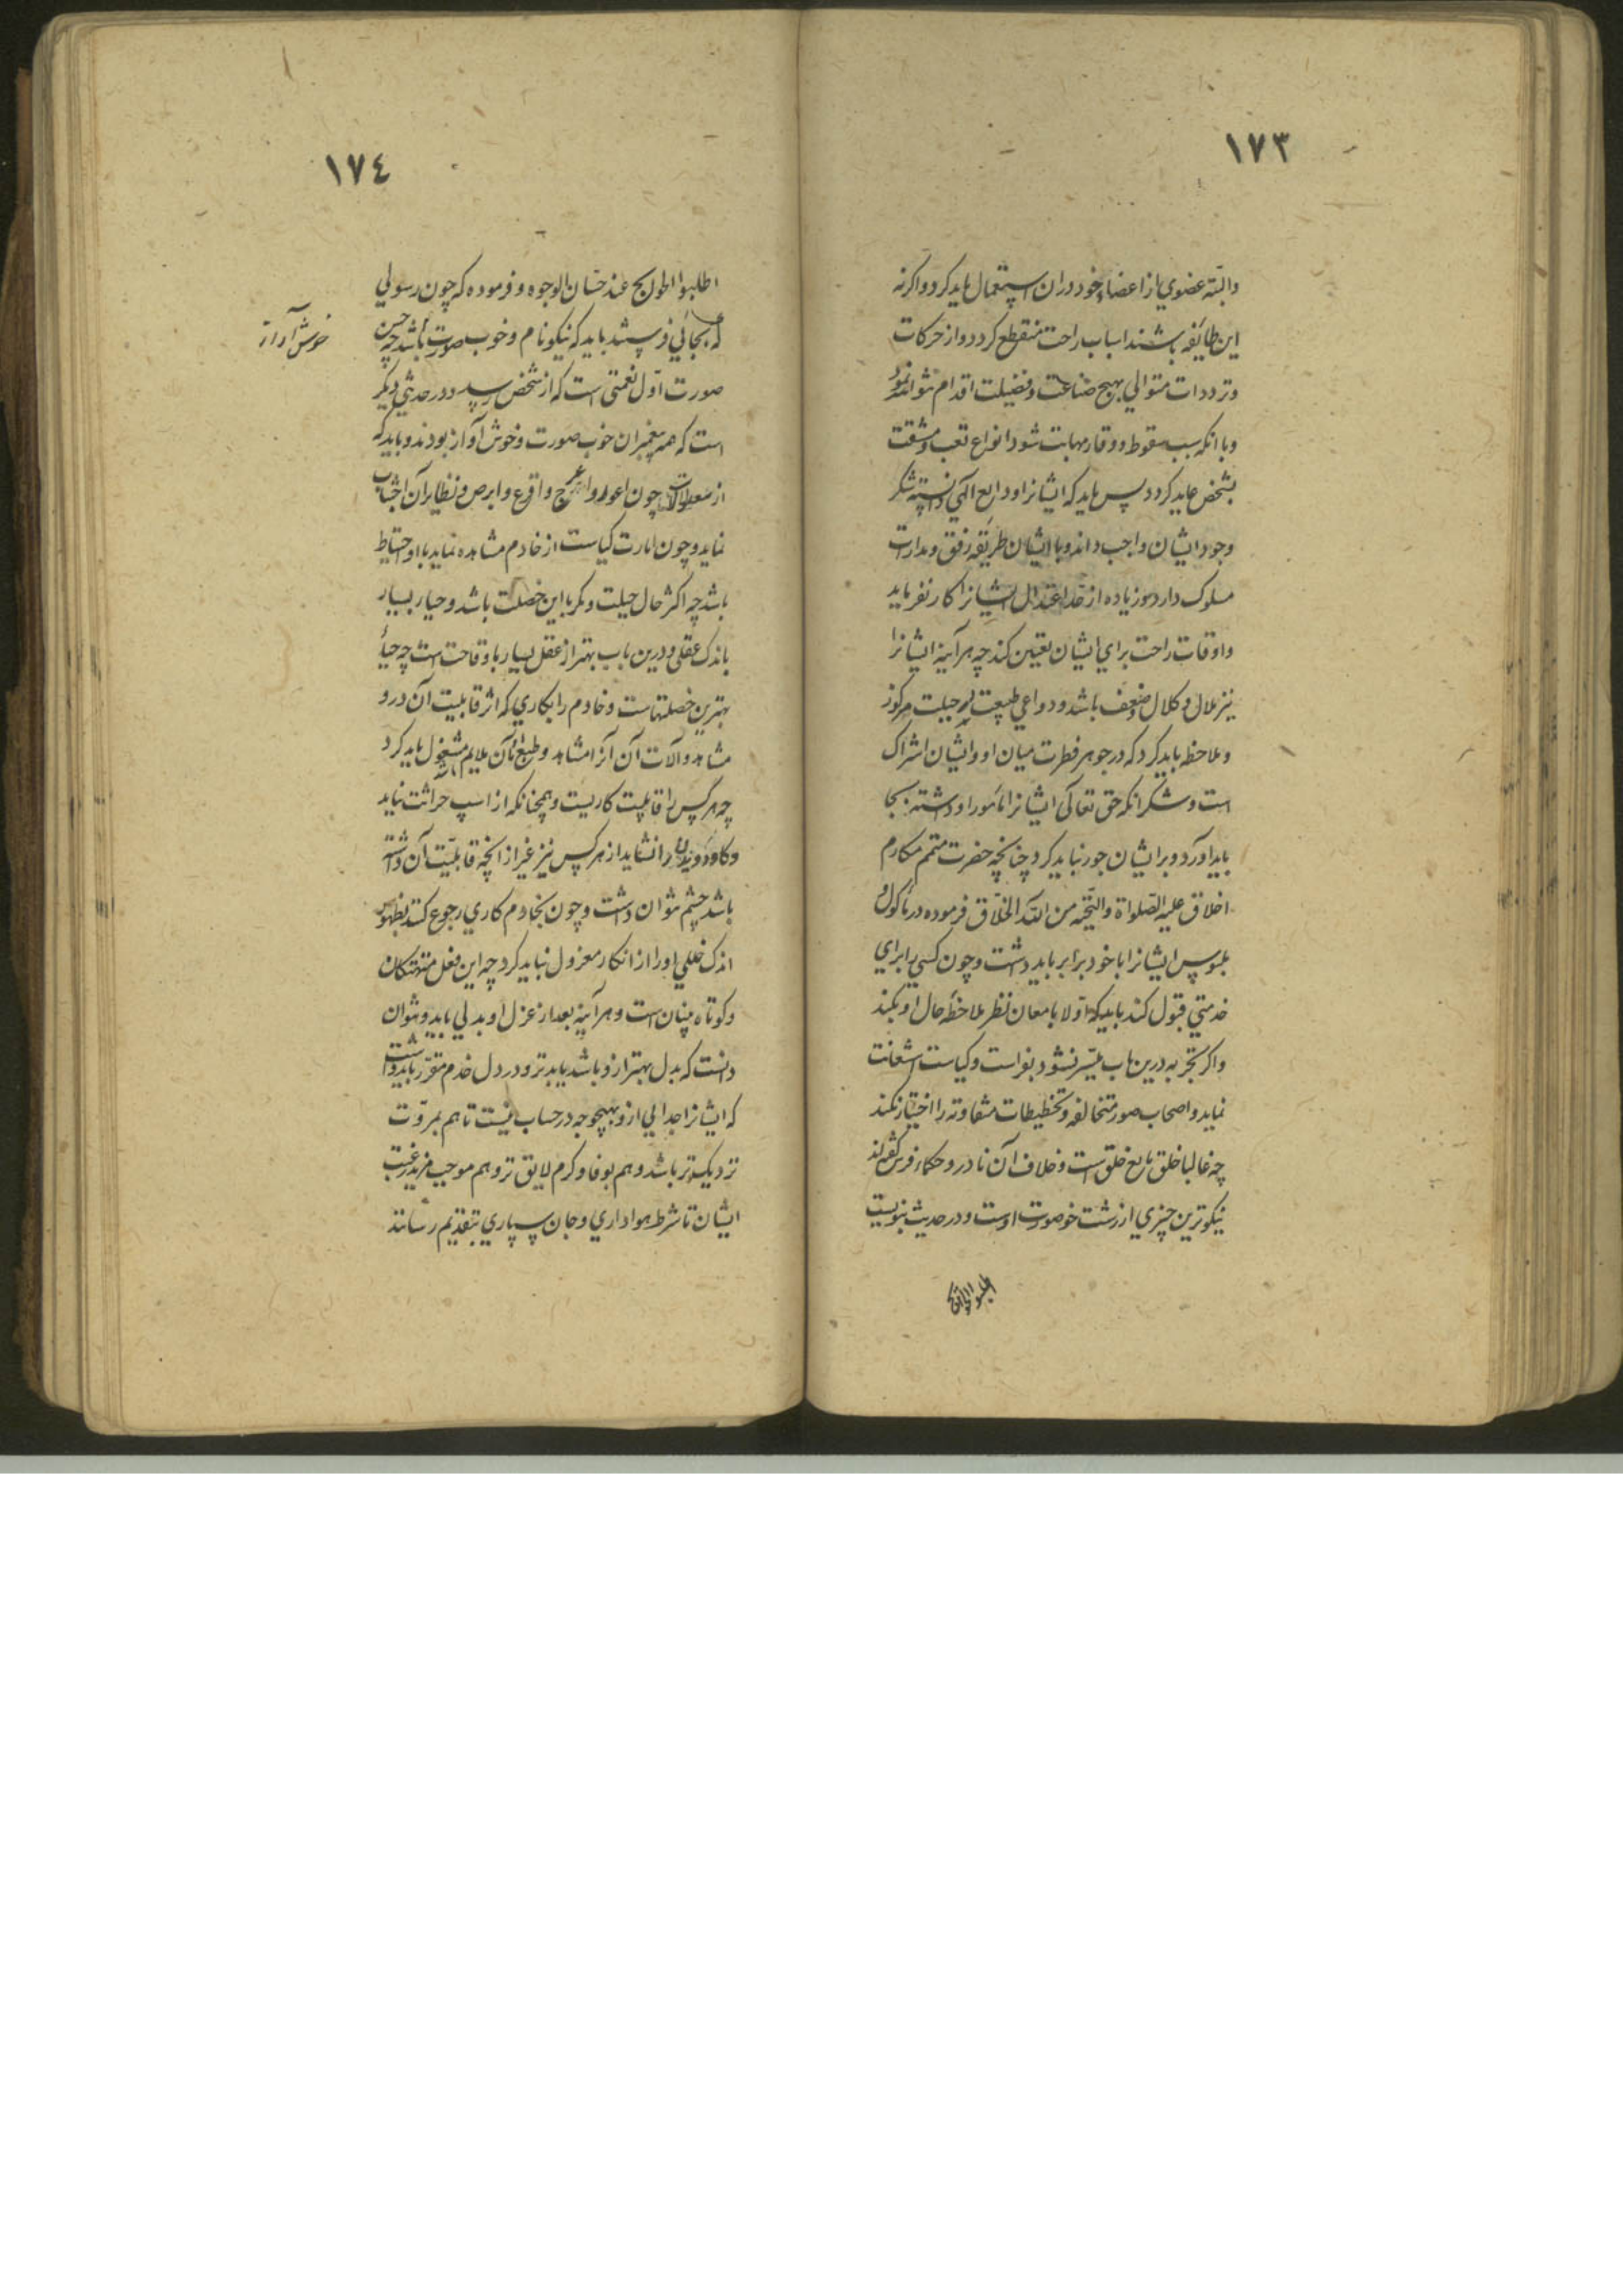 ١٧٣
والبتّه عضوي از اعضاء خود دران استعمال باید کرد واکرنه
این طایٔفه باشند اسباب راحت منقطع کردد واز حرکات
وترددات متوالي بهیچ صناعت وفضیلت اقدام نتواند نمود
وبا انکه سبب سقوط ووقار مهابت شود انواع تعب ومشقت
بشخص عاید کردد پس باید که ایشانرا ودایع الهي دانسته شکر
وجود ایشان واجب داند وبا ایشان طریقه رفق ومدارات
مسلوک دارد وزیاده از حد اعتدال ایشانرا کار نفرماید
واوقات راحت براي ایشان تعیین کند چه هر آینه ایشانرا
نیز ملال وکلال وضعف باشد ودواعي طبیعت در جبلت مرکوز
وملاحظه باید کرد که در جوهر فطرت میان او وایشان اشراک
است وشکر انکه حق تعالی ایشانرا مأمور او داشته بجا
باید آورد وبر ایشان جور نباید کرد چنانچه حضرت متمم مکارم
اخلاق علیه الصّلواة والتحّیه من الله الخلّاق فرموده در مأکول و
ملبوس ایشانرا با خود برابر باید داشت وچون کسي را براي
خدمتي قبول کند بایدکه اوّلا بامعان نظر ملاحظهٔ حال او بکند
واکر تجربه درین باب میسّر نشود بفراست وکیاست استعانت
نماید واصحاب صور متخالفه وتخطیطات متفاوته را اختیار نکند
چه غالبا خلق تابع خلق است وخلاف آن نادر وحکماء فرس کفته‌اند
نیکوترین چیزي از زشت خو صورت اوست ودر حدیث نبویست
١٧٤
اطلبوا الحوایج عند حسّان الوجوه وفرموده که چون رسولي
که بجائي فرستند باید که نیکو نام وخوب صورت باشد چه حسن
صورت اوّل نعمتی است که از شخص رسد ودر حدیثي دیکر
است که همه پیغمبران خوب صورت وخوش آواز بودند وباید که
خوش آواز
از معلولان چون اعور واعرج واقرع وابرص ونظایر آن اجتناب
نماید وچون امارت کیاست از خادم مشاهده نماید با او احتیاط
باشد چه اکثر حال حیلت ومکر با این خصلت باشد وحیاء بسیار
باندک عقلی درین باب بهتر از عقل بسیار با وقاحت است چه حیأ
بهترین خصلتهاست وخادم را بکاري که اثر قابلیت آن درو
مشاهد وآلات آن آنرا مشاهد وطبع بآن ملایم باشد مشغول باید کرد
چه هر کس را قابلیت کاریست وهمچنانکه از اسپ حراثت نیاید
وکاو دویدن را نشاید از هر کس نیز غیر از انچه قابلیّت آن داشته
باشد چشم نتوان داشت وچون بخادم کاري رجوع کند بظهور
اندک خللي اورا از انکار معزول نباید کرد چه این فعل متهتکان
وکوتاه بینان است وهر آینه بعد از عزل او بدلي باید ونتوان
دانست که بدل بهتر ازو باشد یا بدتر ودر دل خدم مقرّر باید داشت
که ایشانرا جدایي ازو بهیچوجه در حساب نیست تا هم بمروّت
نزدیکتر باشد وهم بوفا وکرم لایق تر وهم موجب مزید رغبت
ایشان تا شرط هواداري وجان سپاري بتقدیم رسانند